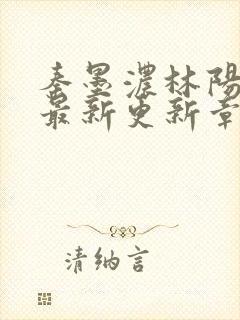 秦墨濃林陽
最新更新章
清纳言